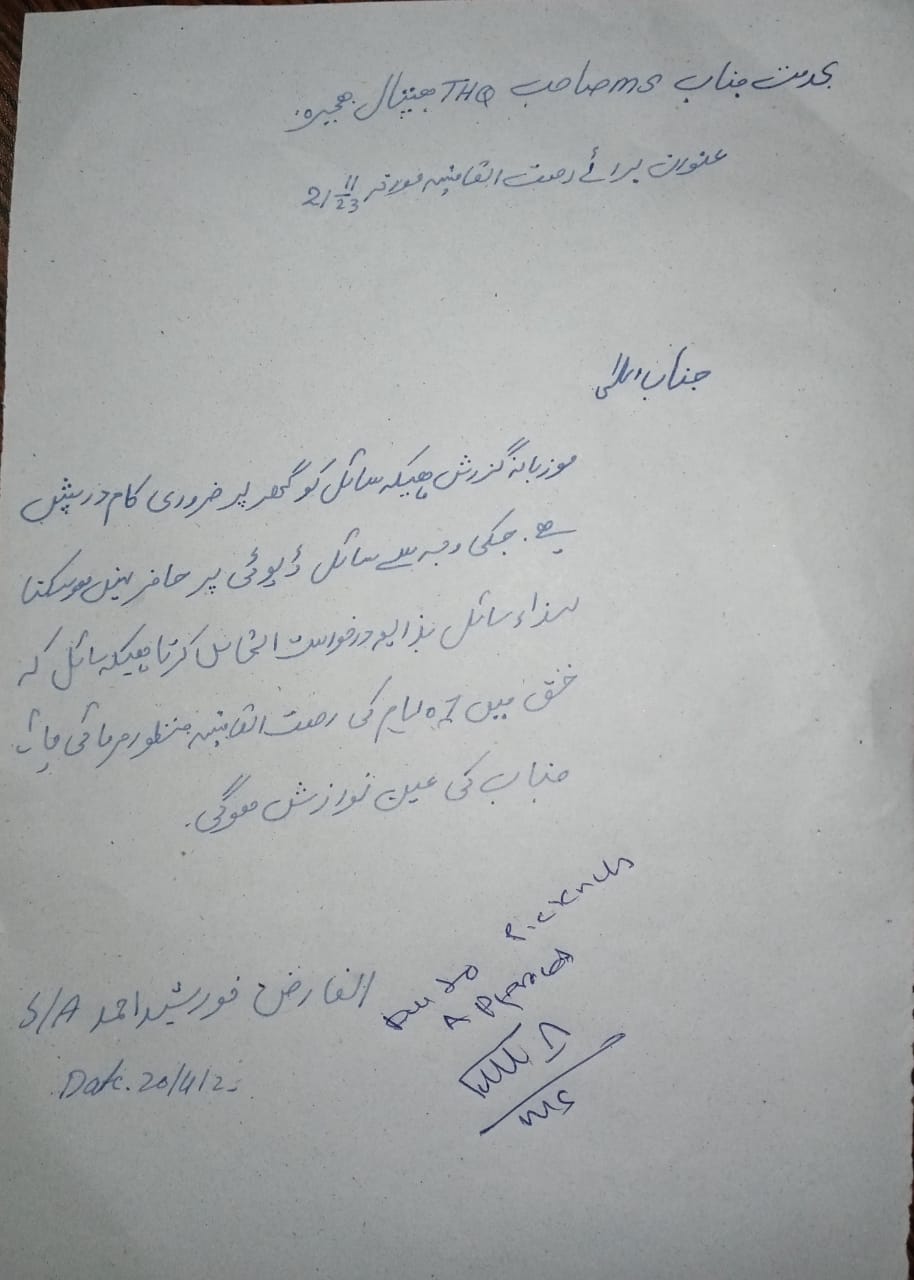 بخدمت جناب MS صاحب THQ ہسپتال ہجیرہ۔
عنوان برائے رخصت اتفاقیہ مورخہ 21/11/23
جناب اعلیٰ
موزبانہ گزرش ہیکہ سائل کو گھر پر ضروری کام درپیش
ہے۔ جکی وجہ سے سائل ڈیوٹی پر حاضر نہیں ہوسکتا
لہذاء سائل بذریعہ درخواست التماس کرتا ہیکہ سائل کہ
حق میں ایام کی رخصت اتفاقیہ منظور فرمائی جائے
جناب کی عین نوازش ہوگی۔
Approved
MS
العارض خورشید احمد S/A
Date. 20/